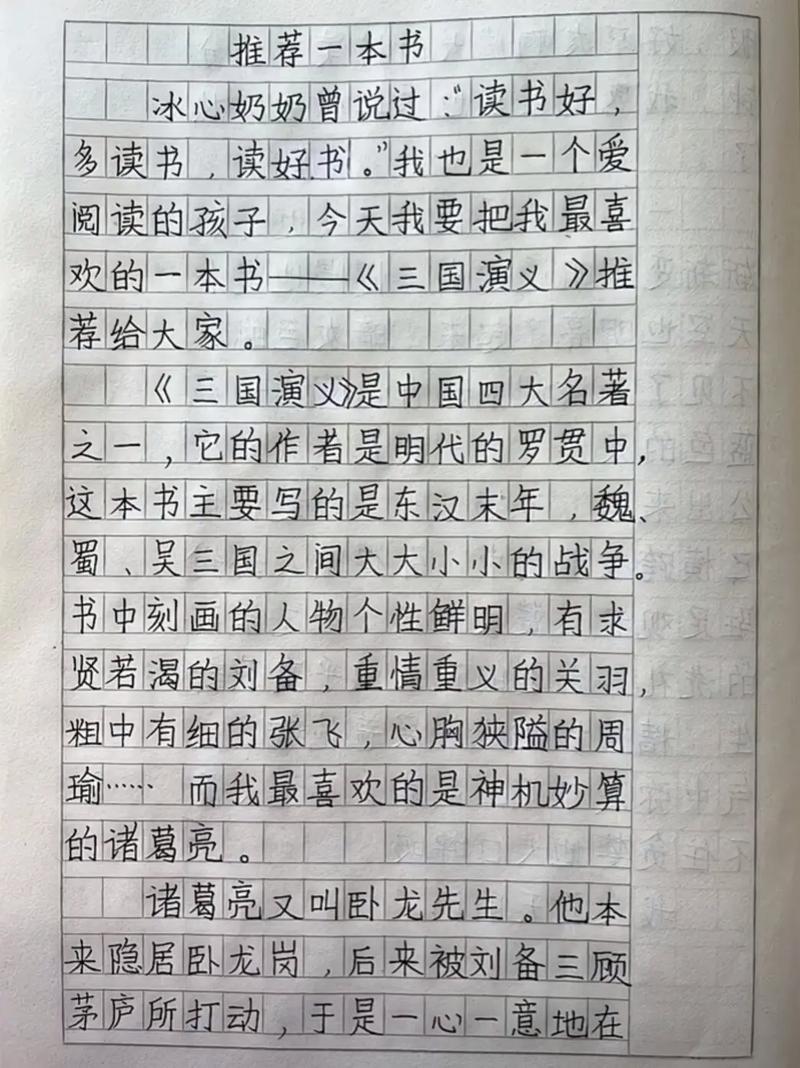 推荐一本书
冰心奶奶曾说过:“读书好,
多读书,读好书。”我也是一个爱
阅读的孩子,今天我要把我最喜
欢的一本书——《三国演义》推
荐给大家。
《三国演义》是中国四大名著
之一,它的作者是明代的罗贯中,
这本书主要写的是东汉末年,魏、
蜀、吴三国之间大大小小的战争。
书中刻画的人物个性鲜明,有求
贤若渴的刘备,重情重义的关羽,
粗中有细的张飞,心胸狭隘的周
瑜……而我最喜欢的是神机妙算
的诸葛亮。
诸葛亮又叫卧龙先生。他本
来隐居卧龙岗,后来被刘备三顾
茅庐所打动,于是一心一意地在